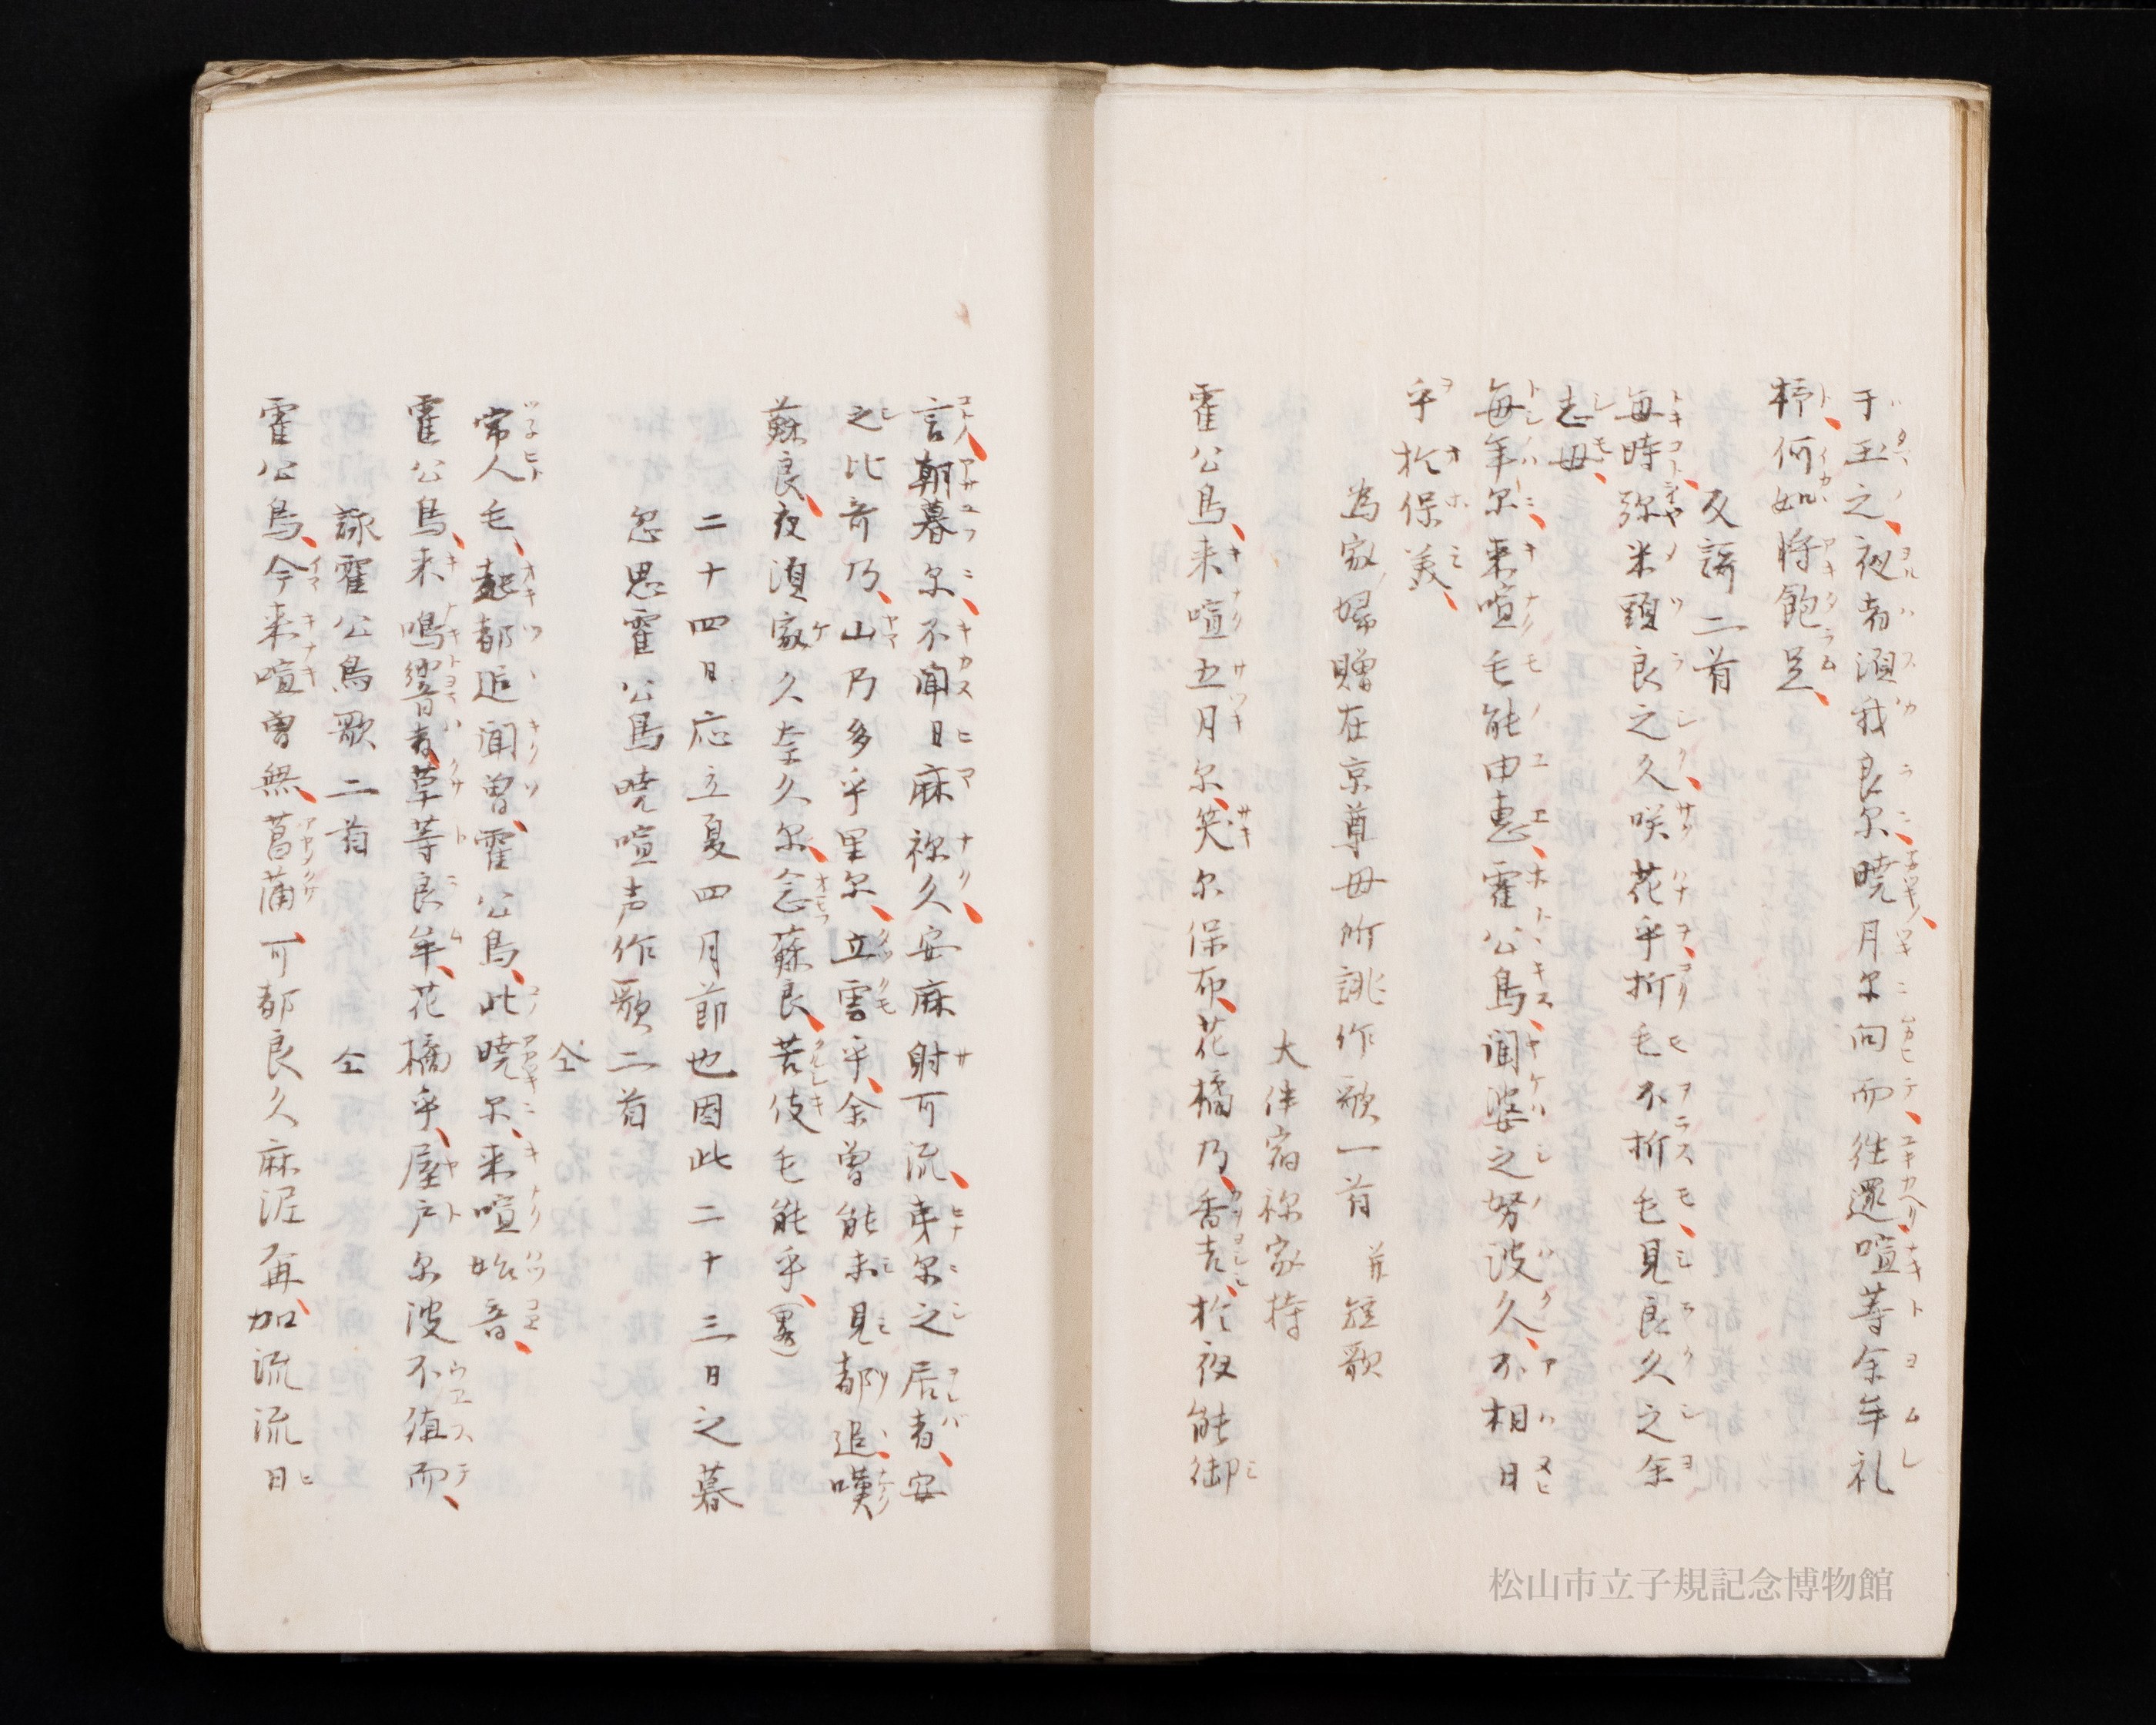 于玉之夜者須我良尓暁月尓向而徃還喧等余牟礼
杼何如将飽足
反謌二首
毎時弥米頭良之久咲花乎折毛不折毛見良久之余
志母
毎年尓来喧毛能由恵霍公鳥聞婆之努波久不相日
乎於保美
為家婦贈在京尊母所誂作歌一首 并短歌
大伴宿祢家持
霍公鳥来喧五月尓笑尓保布花橘乃香吉於夜能御
言朝暮尓不聞日麻祢久安麻射可流夷尓之居者安
之比奇乃山乃多乎里尓立雲乎余曽能未見都追嘆
蘇良夜須家久奈久尓念蘇良苦伎毛能乎(略)
二十四日応立夏四月節也因此二十三日之暮
忽思霍公鳥暁喧声作歌二首
仝
常人毛起都追聞曽霍公鳥此暁尓来喧始音
霍公鳥来鳴響者草等良牟花橘乎屋戸尓波不殖而
詠霍公鳥歌二首 仝
霍公鳥今来喧曽無菖蒲可都良久麻泥爾加流流日
松山市立子規記念博物館